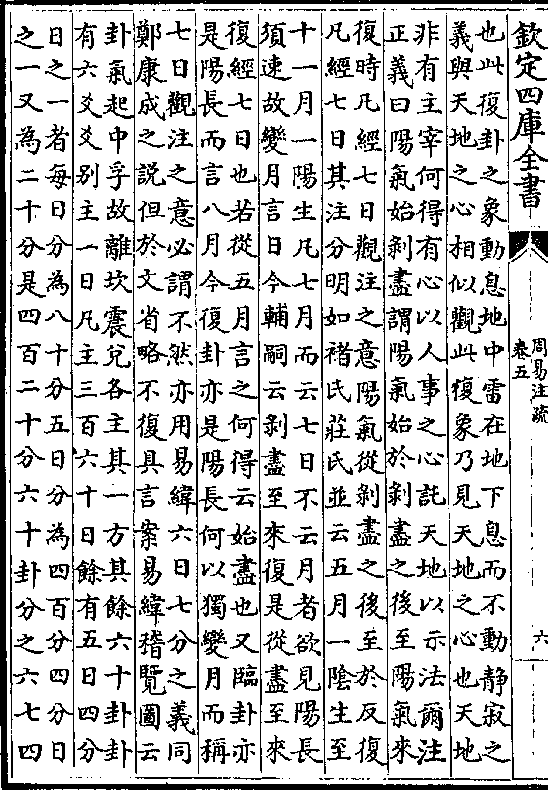 欽定四庫全書
周易注疏
卷五
六
也此復卦之象動息地中雷在地下息而不動静寂之
義與天地之心相似觀此復象乃見天地之心也天地
非有主宰何得有心以人事之心託天地以示法爾注
正義曰陽氣始剝盡謂陽氣始於剝盡之後至陽氣來
復時凡經七日觀注之意陽氣從剝盡之後至於反復
凡經七日其注分明如褚氏莊氏並云五月一陰生至
十一月一陽生凡七月而云七日不云月者欲見陽長
須速故變月言日今輔嗣云剝盡至來復是從盡至來
復經七日也若從五月言之何得云始盡也又臨卦亦
是陽長而言八月今復卦亦是陽長何以獨變月而稱
七日觀注之意必謂不然亦用易緯六日七分之義同
鄭康成之說但於文省略不復具言案易緯稽覽圖云
卦氣起中孚故離坎震兌各主其一方其餘六十卦卦
有六爻爻别主一日凡主三百六十日餘有五日四分
日之一者每日分為八十分五日分為四百分四分日
之一又為二十分是四百二十分六十卦分之六七四